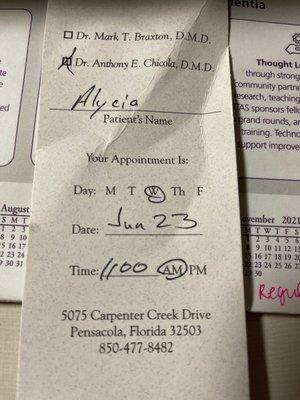 entia
☐ Dr. Mark T. Braxton, D.M.D.
☑ Dr. Anthony E. Chicola, D.M.D.
Alycia
Patient's Name
Your Appointment Is:
Day: M T W Th F
Date: Jun 23
Time: 1100 AM PM
5075 Carpenter Creek Drive
Pensacola, Florida 32503
850-477-8482
Thought L
through strong
community partne
research, teaching
TAS sponsors fello
grand rounds, an
training. Techno
support improve
August
S M T
1 2 3
8 9 10
15 16 17
22 23 24
29 30 31
ovember 2021
M T W T F S
1 2 3 4 5 6
8 9 10 11 12 13
15 16 17 18 19 20
22 23 24 25 26 27
29 30
Regul